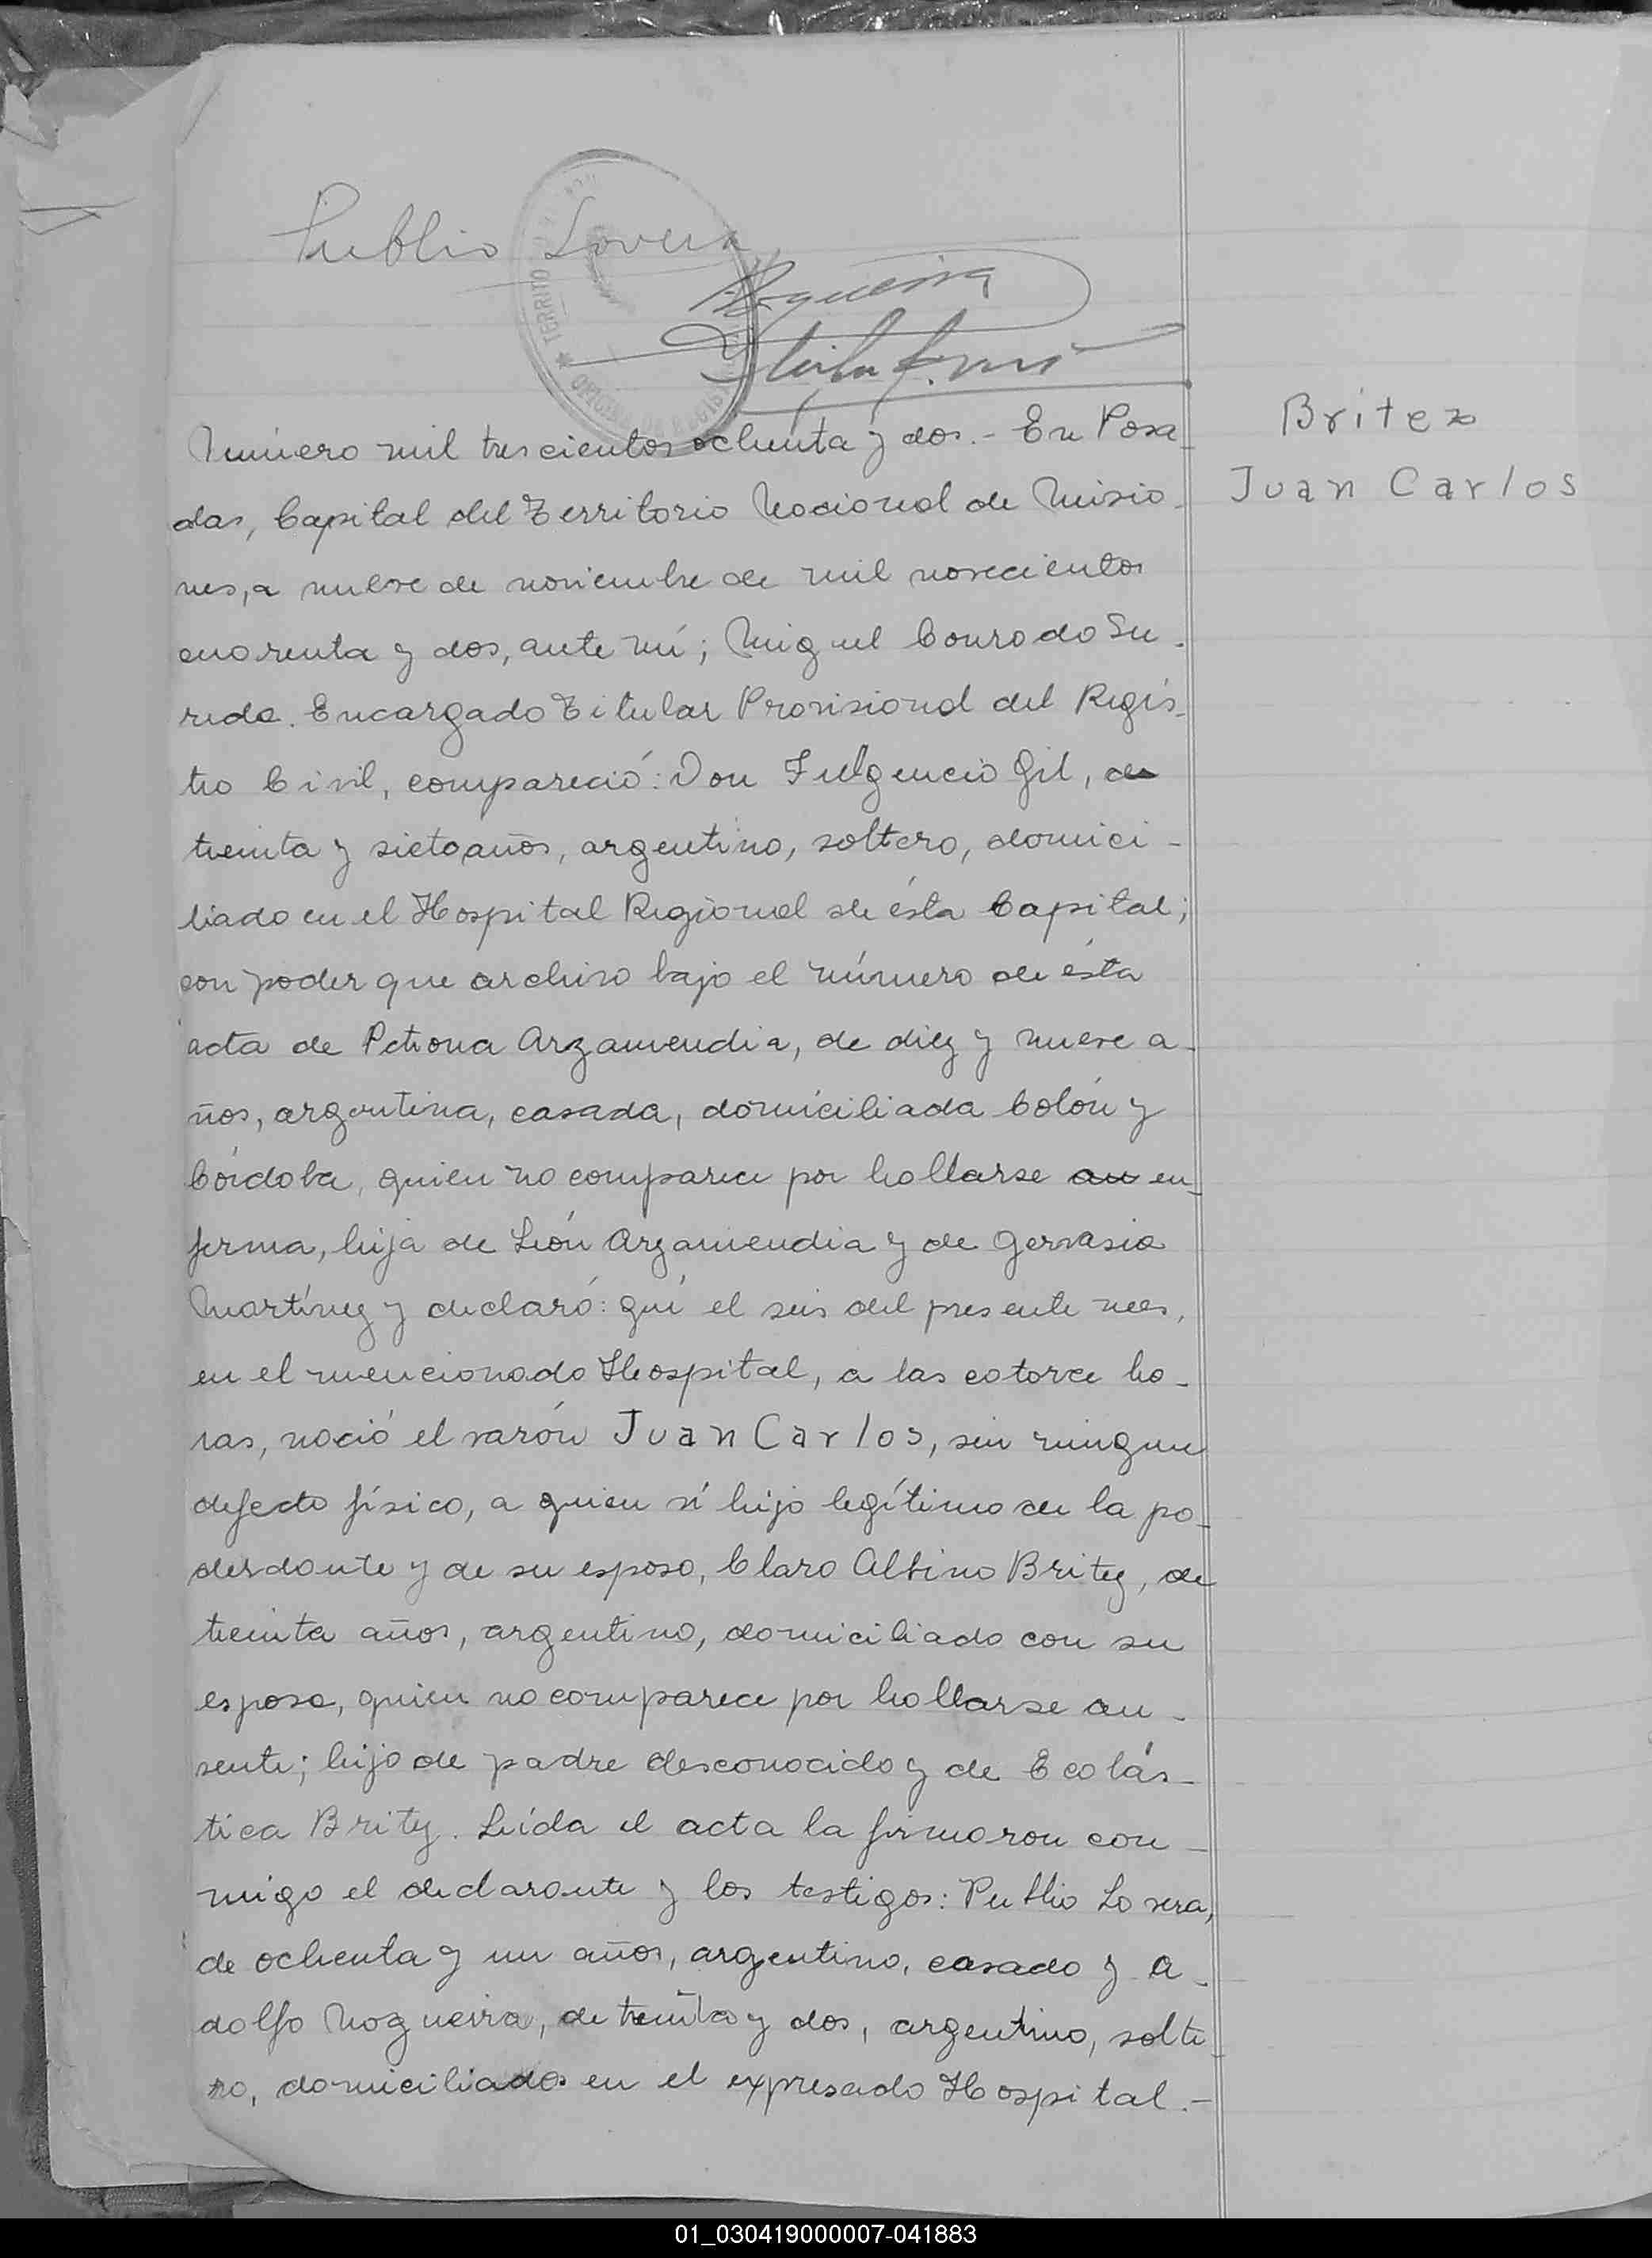 Publio Lovera
Nogueira
TERRITO
OFICINA DE REGIS
Número mil trescientos ochenta y dos.- En Posa-
Britez
das, Capital del Territorio Nacional de Misio-
Juan Carlos
nes, a nueve de noviembre de mil novecientos
cuarenta y dos, ante mí; Miguel Conrado Su-
reda. Encargado Titular Provisional del Regis-
tro Civil, compareció: Don Fulgencio Gil, de
treinta y siete años, argentino, soltero, domici-
liado en el Hospital Regional de ésta Capital;
con poder que archivo bajo el número de ésta
acta de Petrona Arzamendia, de diez y nueve a-
ños, argentina, casada, domiciliada Colón y
Córdoba, quien no comparece por hallarse au en-
ferma, hija de León Arzamendia y de Gervasia
Martínez y declaró: qué el seis del presente mes,
en el mencionado Hospital, a las catorce ho-
ras, nació el varón Juan Carlos, sin ningun
defecto físico, a quien sí hijo legítimo de la po-
derdante y de su esposo, Claro Albino Britez, de
treinta años, argentino, domiciliado con su
esposa, quien no comparece por hallarse au-
sente; hijo de padre desconocido y de Ecolás-
tica Britez. Leída el acta la firmaron con-
migo el declarante y los testigos: Publio Lovera,
de ochenta y un años, argentino, casado y A-
dolfo Nogueira, de treinta y dos, argentino, solte-
ro, domiciliados en el expresado Hospital.-
01_030419000007-041883